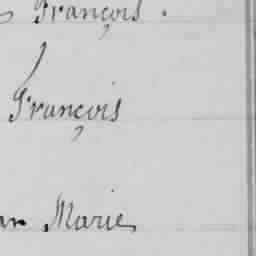 François.
François
an Marie